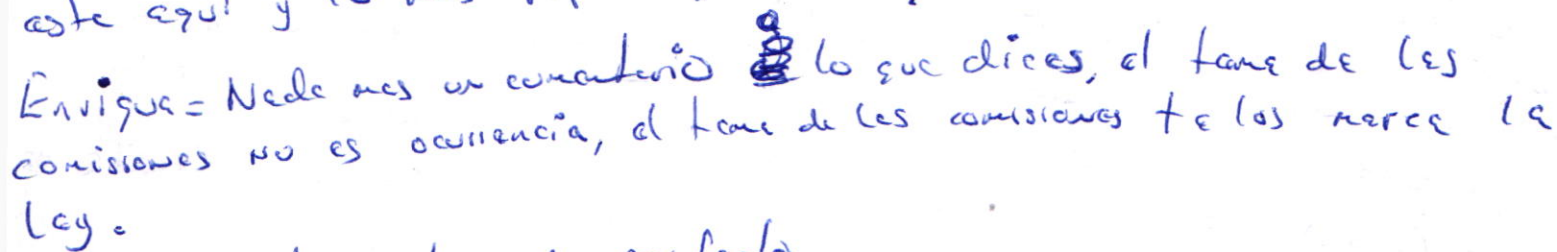 este aqui y
Enrique = Nada mas un comentario a lo que dices, el tema de las
comisiones no es ocurrencia, el tema de las comisiones te los marca la
ley.